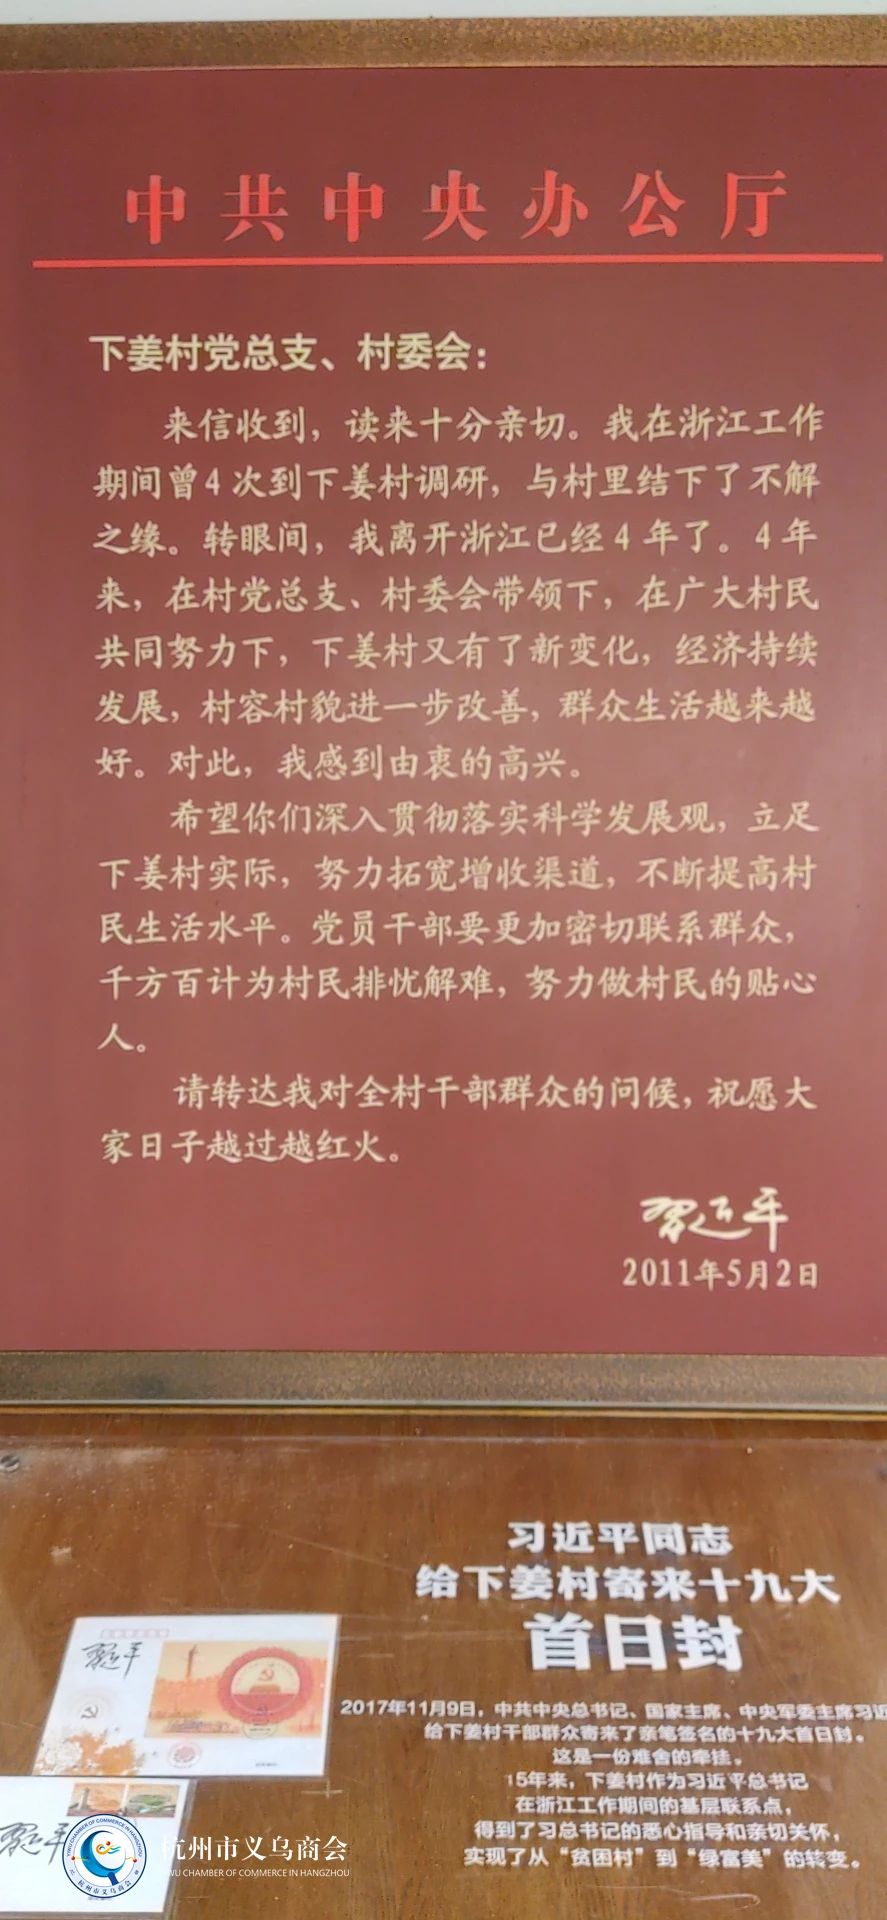 中共中央办公厅
下姜村党总支、村委会：
来信收到，读来十分亲切。我在浙江工作
期间曾4次到下姜村调研，与村里结下了不解
之缘。转眼间，我离开浙江已经4年了。4年
来，在村党总支、村委会带领下，在广大村民
共同努力下，下姜村又有了新变化，经济持续
发展，村容村貌进一步改善，群众生活越来越
好。对此，我感到由衷的高兴。
希望你们深入贯彻落实科学发展观，立足
下姜村实际，努力拓宽增收渠道，不断提高村
民生活水平。党员干部要更加密切联系群众，
千方百计为村民排忧解难，努力做村民的贴心
人。
请转达我对全村干部群众的问候，祝愿大
家日子越过越红火。
习近平
2011年5月2日
习近平同志
给下姜村寄来十九大
首日封
2017年11月9日，中共中央总书记、国家主席、中央军委主席习近
给下姜村干部群众寄来了亲笔签名的十九大首日封。
这是一份难舍的牵挂。
15年来，下姜村作为习近平总书记
在浙江工作期间的基层联系点，
得到了习总书记的悉心指导和亲切关怀，
实现了从“贫困村”到“绿富美”的转变。
习近平
习近平
杭州市义乌商会
YIWU CHAMBER OF COMMERCE IN HANGZHOU
YIWU CHAMBER OF COMMERCE IN HANGZHOU
杭州市义乌商会